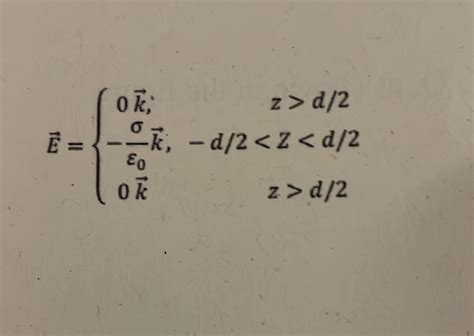 0 k⃗, z > d/2
E⃗ = { −σ/ε₀ k⃗, −d/2 < Z < d/2
0 k⃗ z > d/2